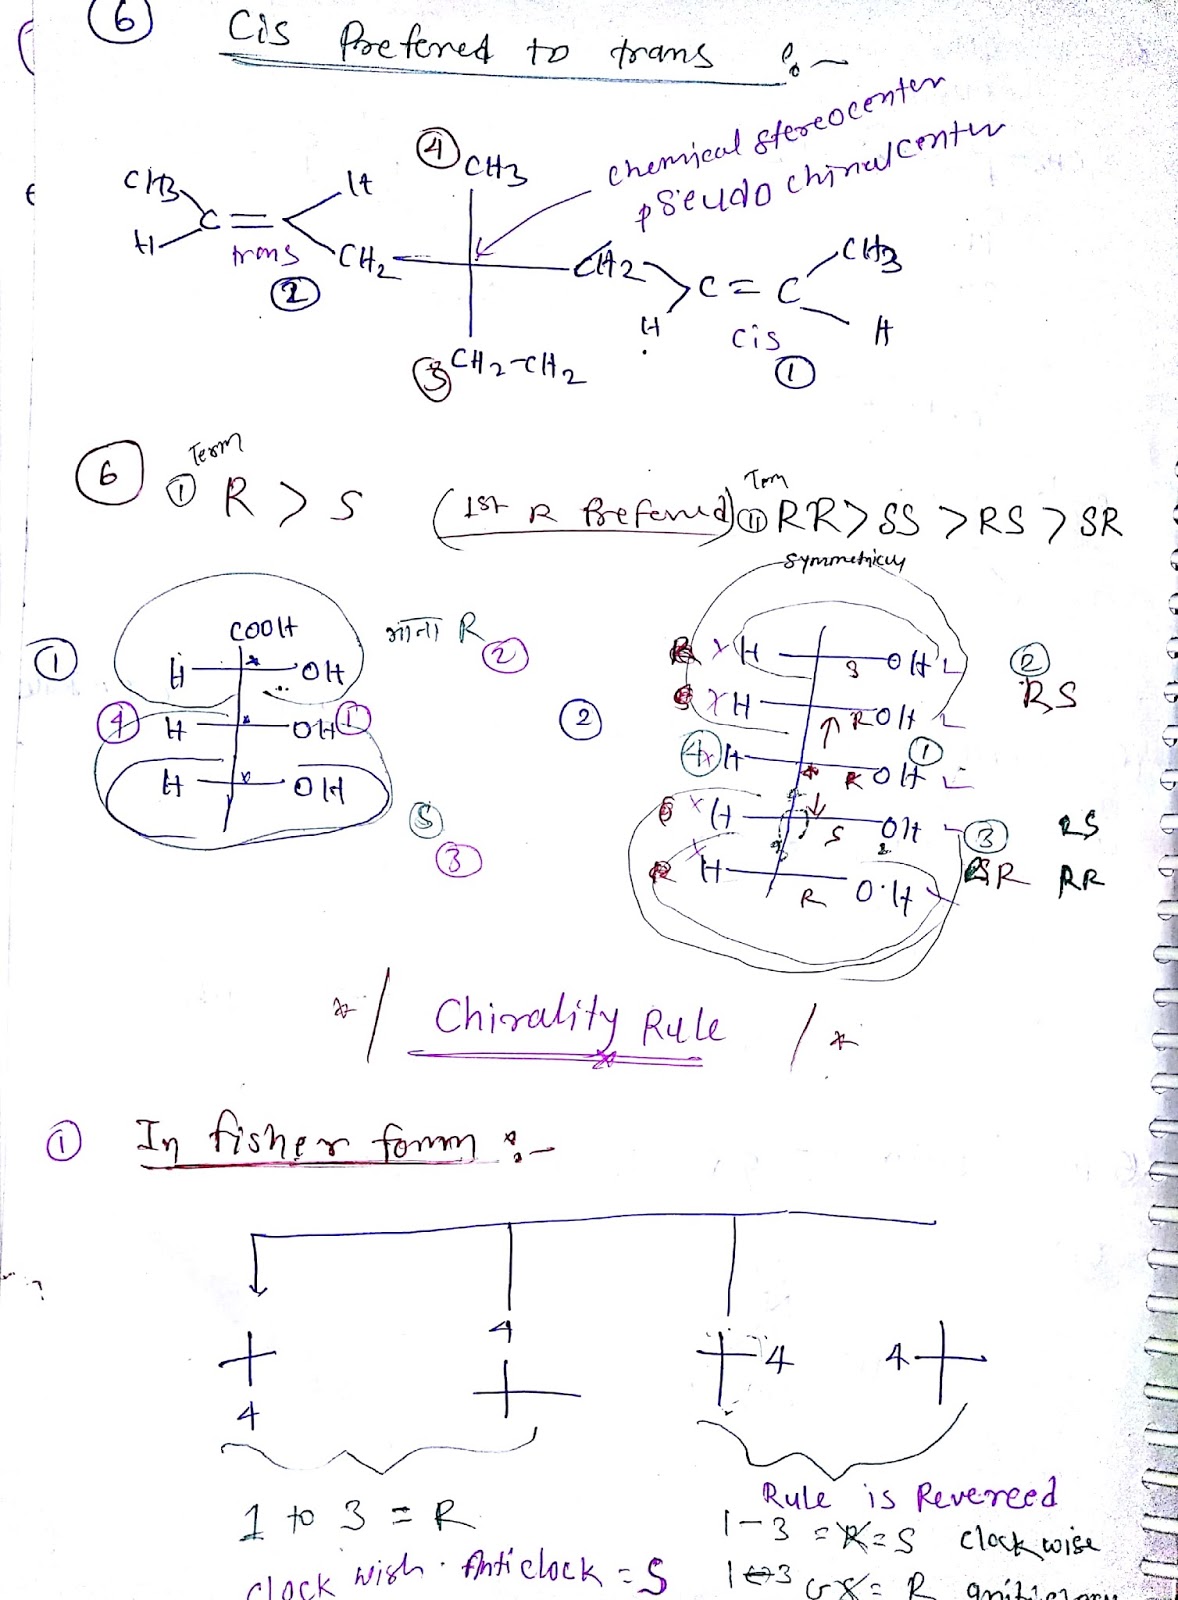 6 Cis Prefered to trans :~
chemical stereocenter
pseudo chiral center
4 CH3
CH3 H
C =
H trans CH2 CH2 C = C CH3
2 H cis H
3 CH2-CH2 1
6 Term 1 R > S (1st R Prefered) Term II RR > SS > RS > SR
Symmetricly
1 COOH माना R 2
H * OH
4 H OH 1
H OH
S
3
2 R x H S OH 2
S x H R OH RS
4 x H * R OH 1
S x H S OH 3 RS
R x H R OH SR RR
* / Chirality Rule / *
1 In fisher fomm :-
4
4 4
4
Rule is Revereed
1 to 3 = R 1-3 = R = S clockwise
clock wish . Anticlock = S 1↔3 = R